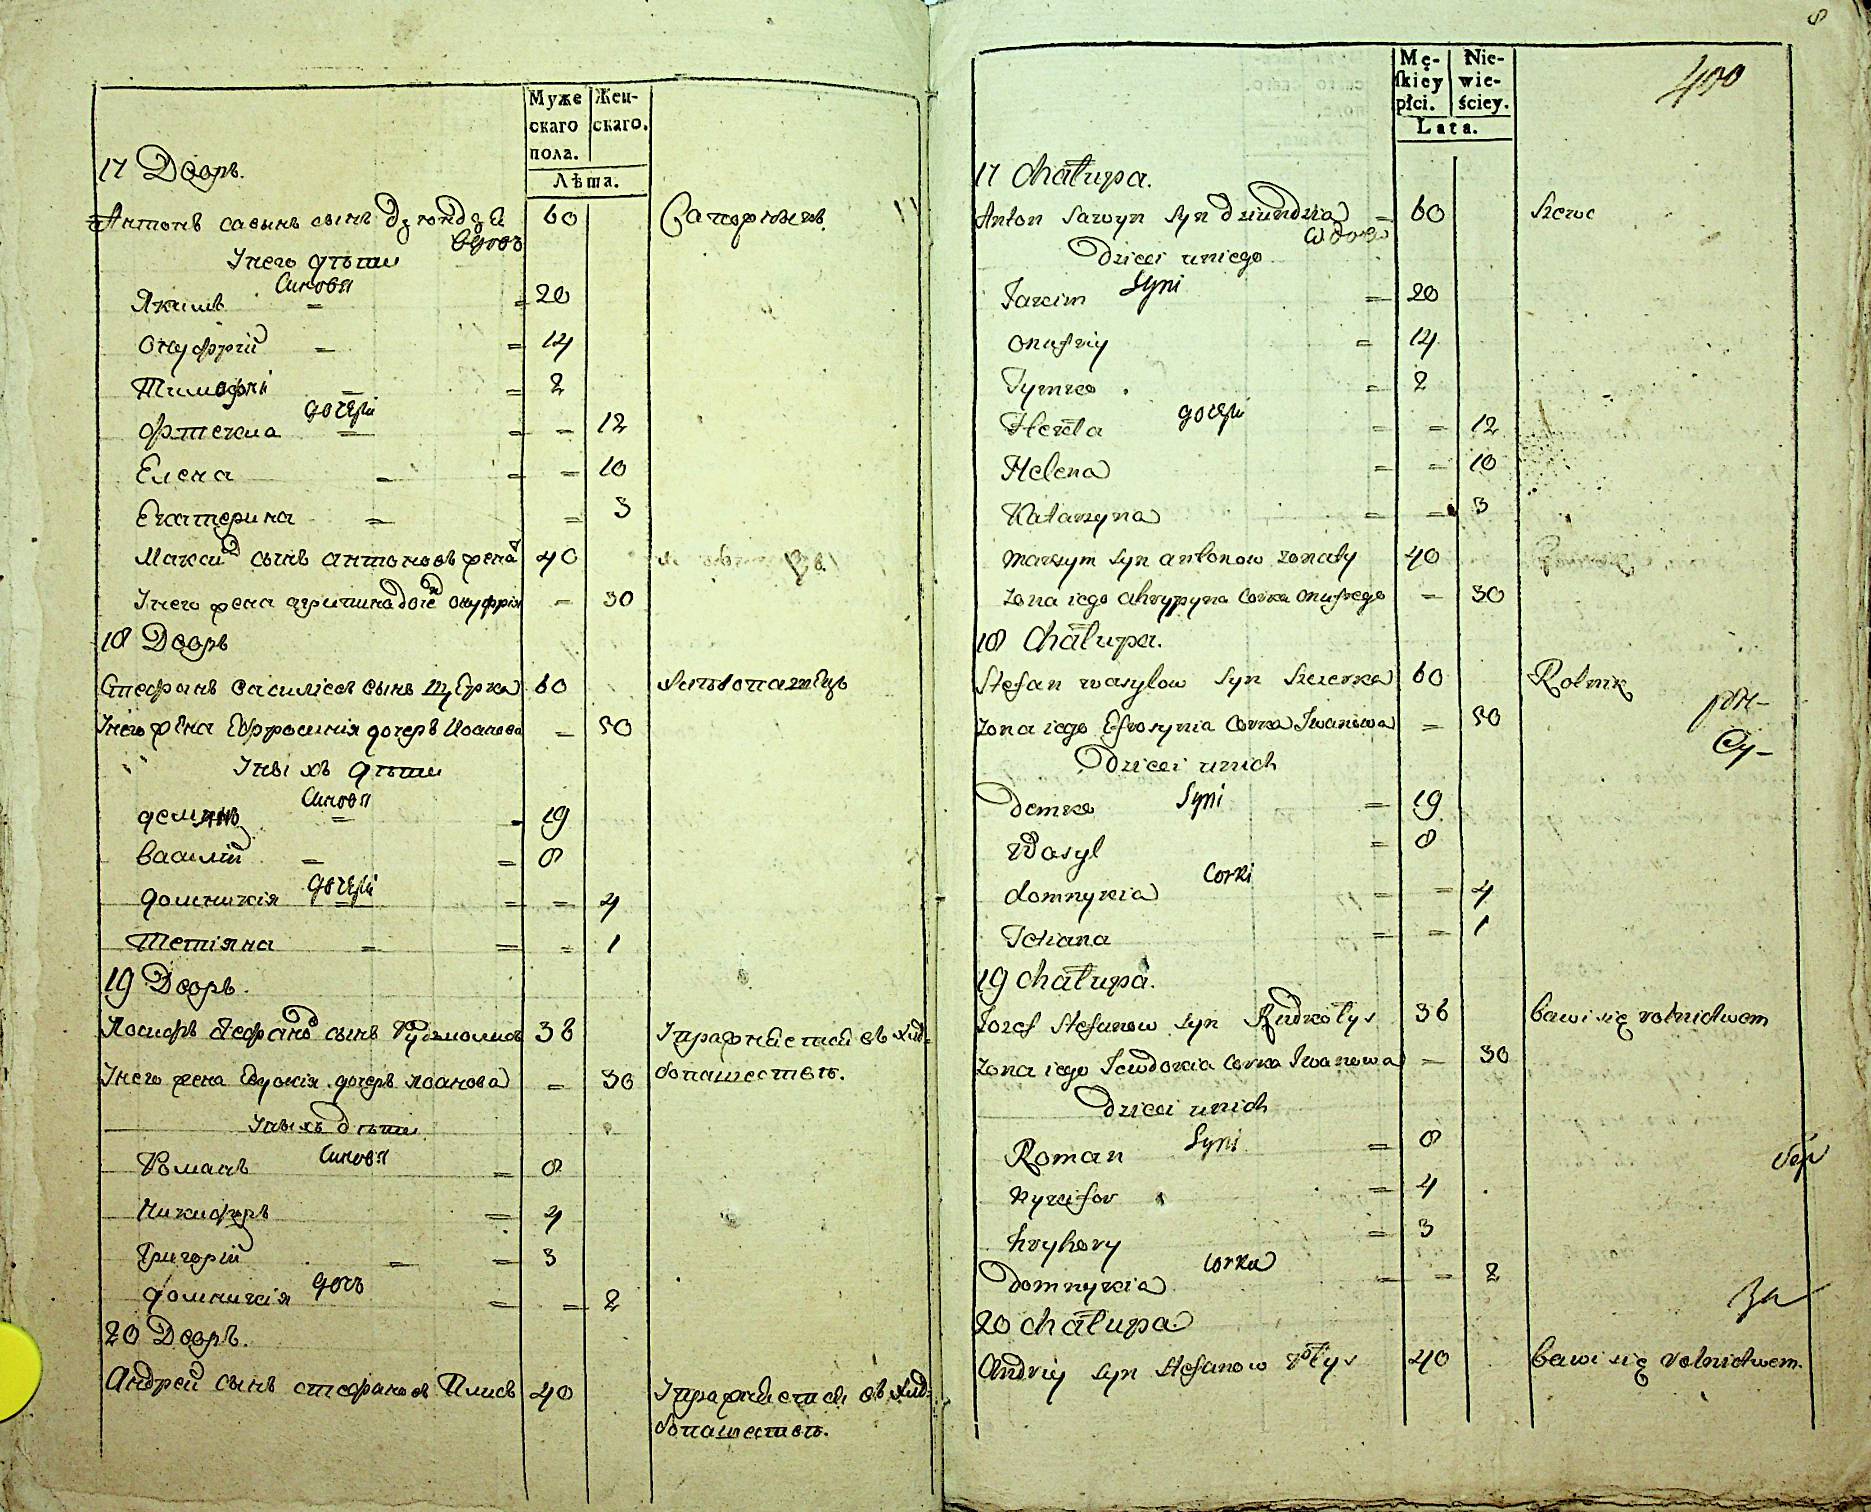 Муже Жен-
скаго скаго.
пола.
Лѣта.
17 Дворъ.
Антонъ савынъ сынъ 60
вдовъ
Унего дѣти
Синовя
Якимъ = = 20
Онуфрій = = 14
Тимофѣй = = 2
дочери
= = = 12
Елена = = = 10
Екатерина = = 3
Максим сынъ антоновъ жена 40
Унего жена агрипина доче онуфрія = 30
18 Дворъ
Стефанъ василіевъ сынъ 60
Унего жена Евфросинія дочерь Иоанова = 50
Унихъ дѣти
Синовя
= 19
Василій = = 8
дочери
домникія = = = 4
Тетіяна = = = 1
19 Дворъ.
Иосифъ стефановъ сынъ 36 Упражняется въ хлѣ-
Унего жена Евдокія дочерь иоанова = 30 бопашествѣ.
Унихъ дѣти
Синовя
Романъ = 8
Никифоръ = 4
Григорій = = 3
дочь
домникія = = 2
20 Дворъ.
Андрей сынъ стефановъ 40 Упражняется въ хлѣ-
бопашествѣ.
8
400
Mę- Nie-
ſkiey wie-
płci. ściey.
Lata.
17 chałupa.
Anton Sawyn Syn Dziundzia = 60 Szewc
wdowo
Dzieci uniego
Syni
Jakim = 20
Onufriy = 14
Tymko = 2
дочери
= = 12
Helena = = 10
Katarzyna = = 3
Maksym Syn antonow zonaty 40
zona iego ahrypyna Corka onufrego = 30
18 Chałupa.
Stefan wasylow Syn 60 Rolnik
zona iego Efrosynia Corka Iwanowa = 50
Dzieci unich
Syni
Demko = 19
Wasyl = 8
Corki
domnykia = = 4
Teciana = = 1
19 chałupa.
Jozef Stefanow Syn 36 bawi się rolnictwem
zona iego Iewdokia Corka Iwanowa = 30
Dzieci unich
Syni
Roman = 8
Nykifor = 4
hryhory = 3
Corka
Domnykia = = 2
20 chałupa
Andriy Syn Stefanow 40 bawi się rolnictwem.